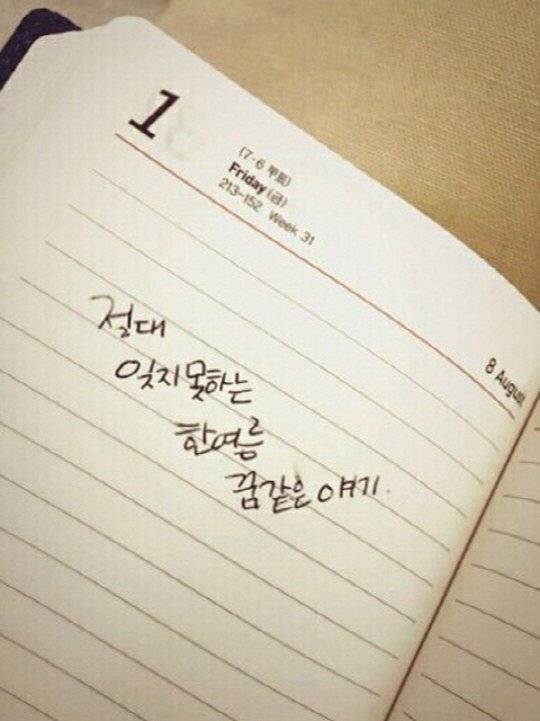 1
(7-6 甲辰)
Friday (금)
213-152 Week 31
8 August
절대
잊지못하는
한여름
꿈같은 얘기.